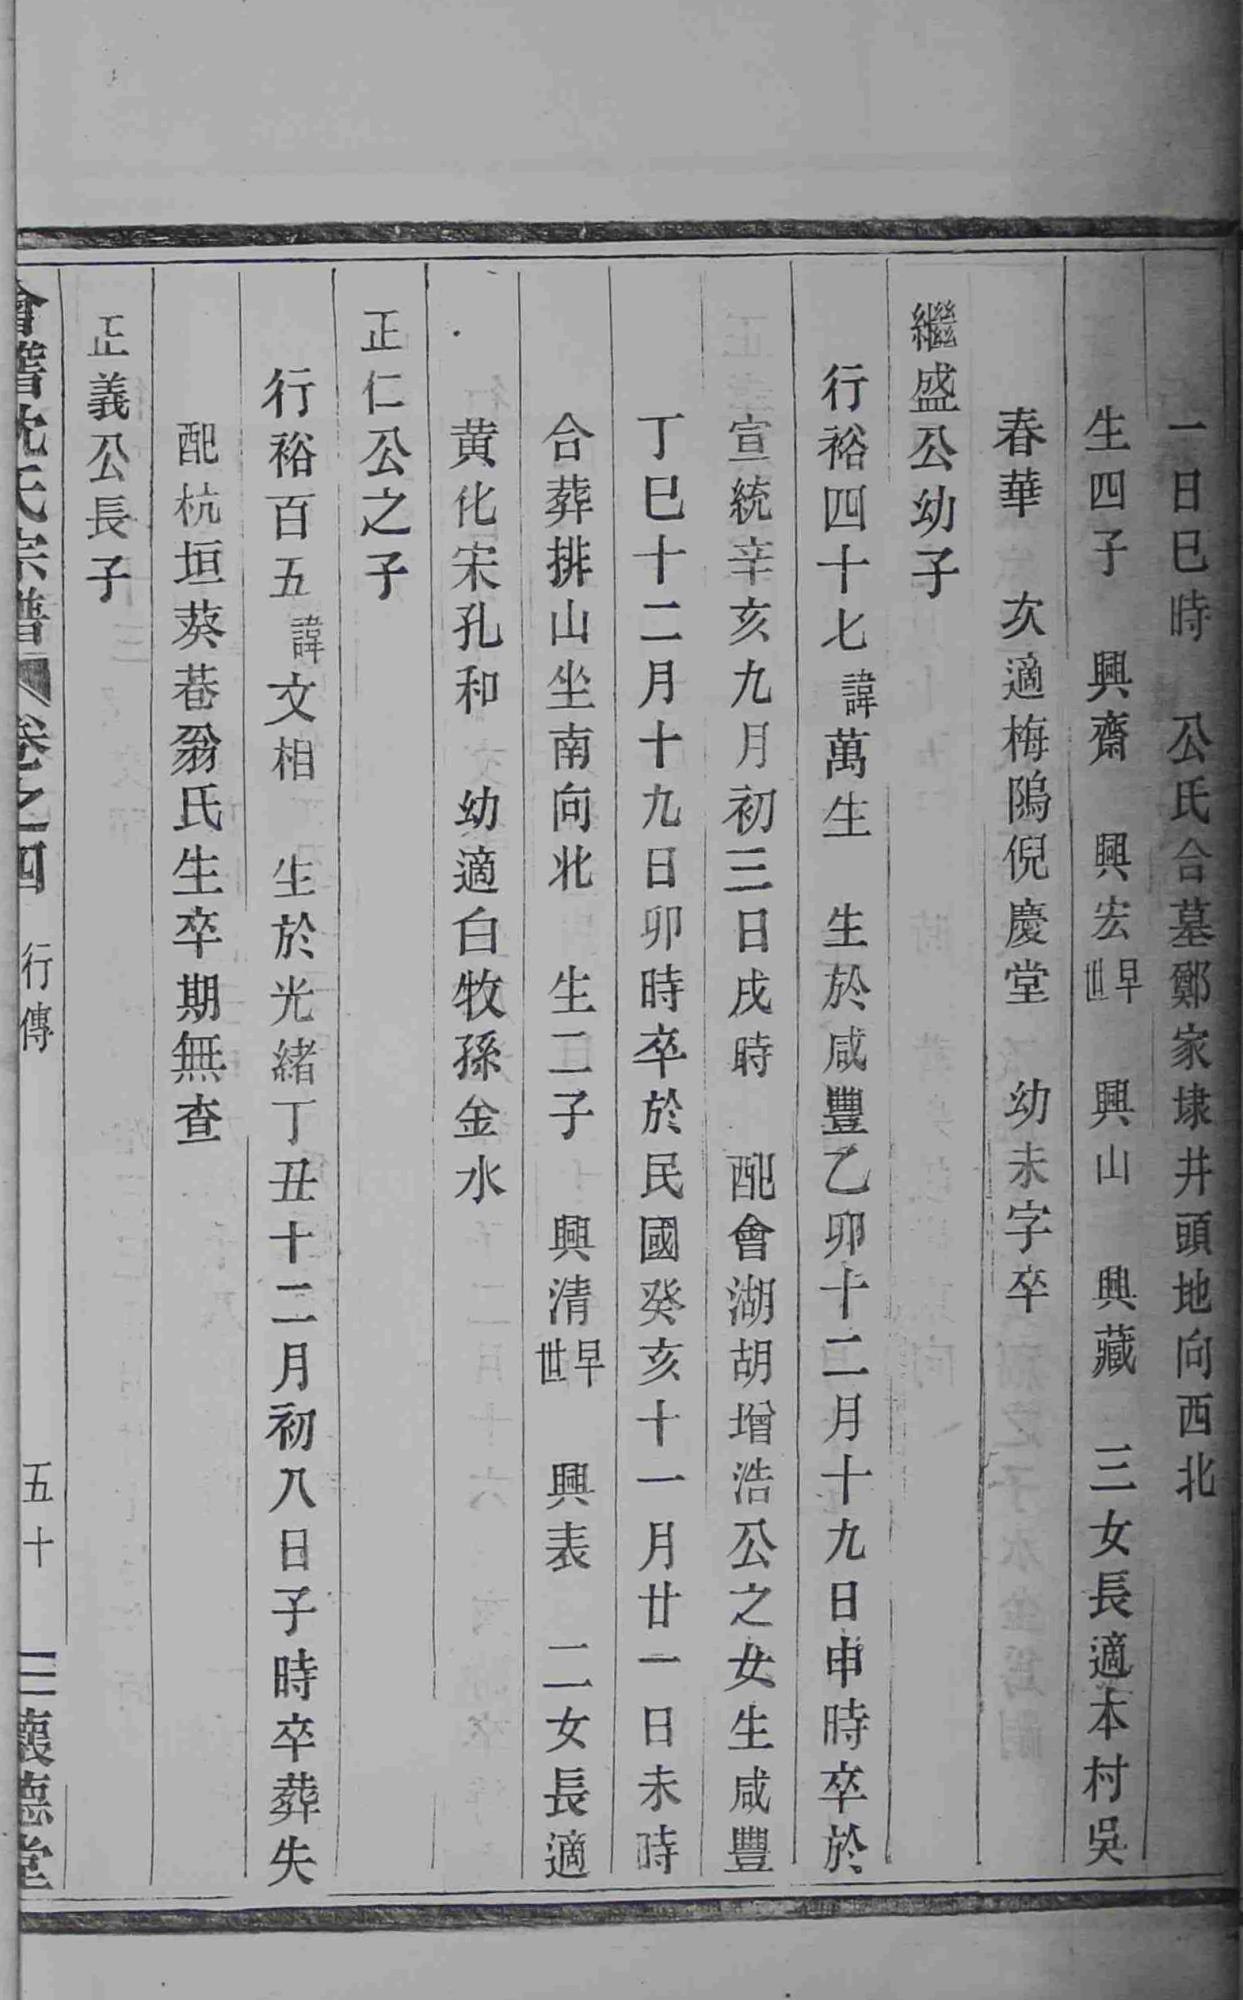 一日巳時　公氏合墓鄭家埭井頭地向西北
生四子　興齋　興宏早世　興山　興藏　三女長適本村吳
春華　次適梅隖倪慶堂　幼未字卒
繼盛公幼子
行裕四十七諱萬生　生於咸豐乙卯十二月十九日申時卒於
宣統辛亥九月初三日戌時　配會湖胡增浩公之女生咸豐
丁巳十二月十九日卯時卒於民國癸亥十一月廿一日未時
合葬排山坐南向北　生二子　興清早世　興表　二女長適
黄化宋孔和　幼適白牧孫金水
正仁公之子
行裕百五諱文相　生於光緒丁丑十二月初八日子時卒葬失
配杭垣葵巷翁氏生卒期無查
正義公長子
會稽沈氏宗譜　卷之四　行傳　五十　三懐德堂